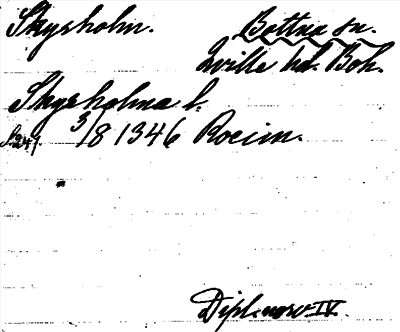 Skysholm. Bettna sn.
Oville hd. Boh.
Skysholma l.
s. 249 3/8 1346 Rocim.
Dipl. norv. IV.